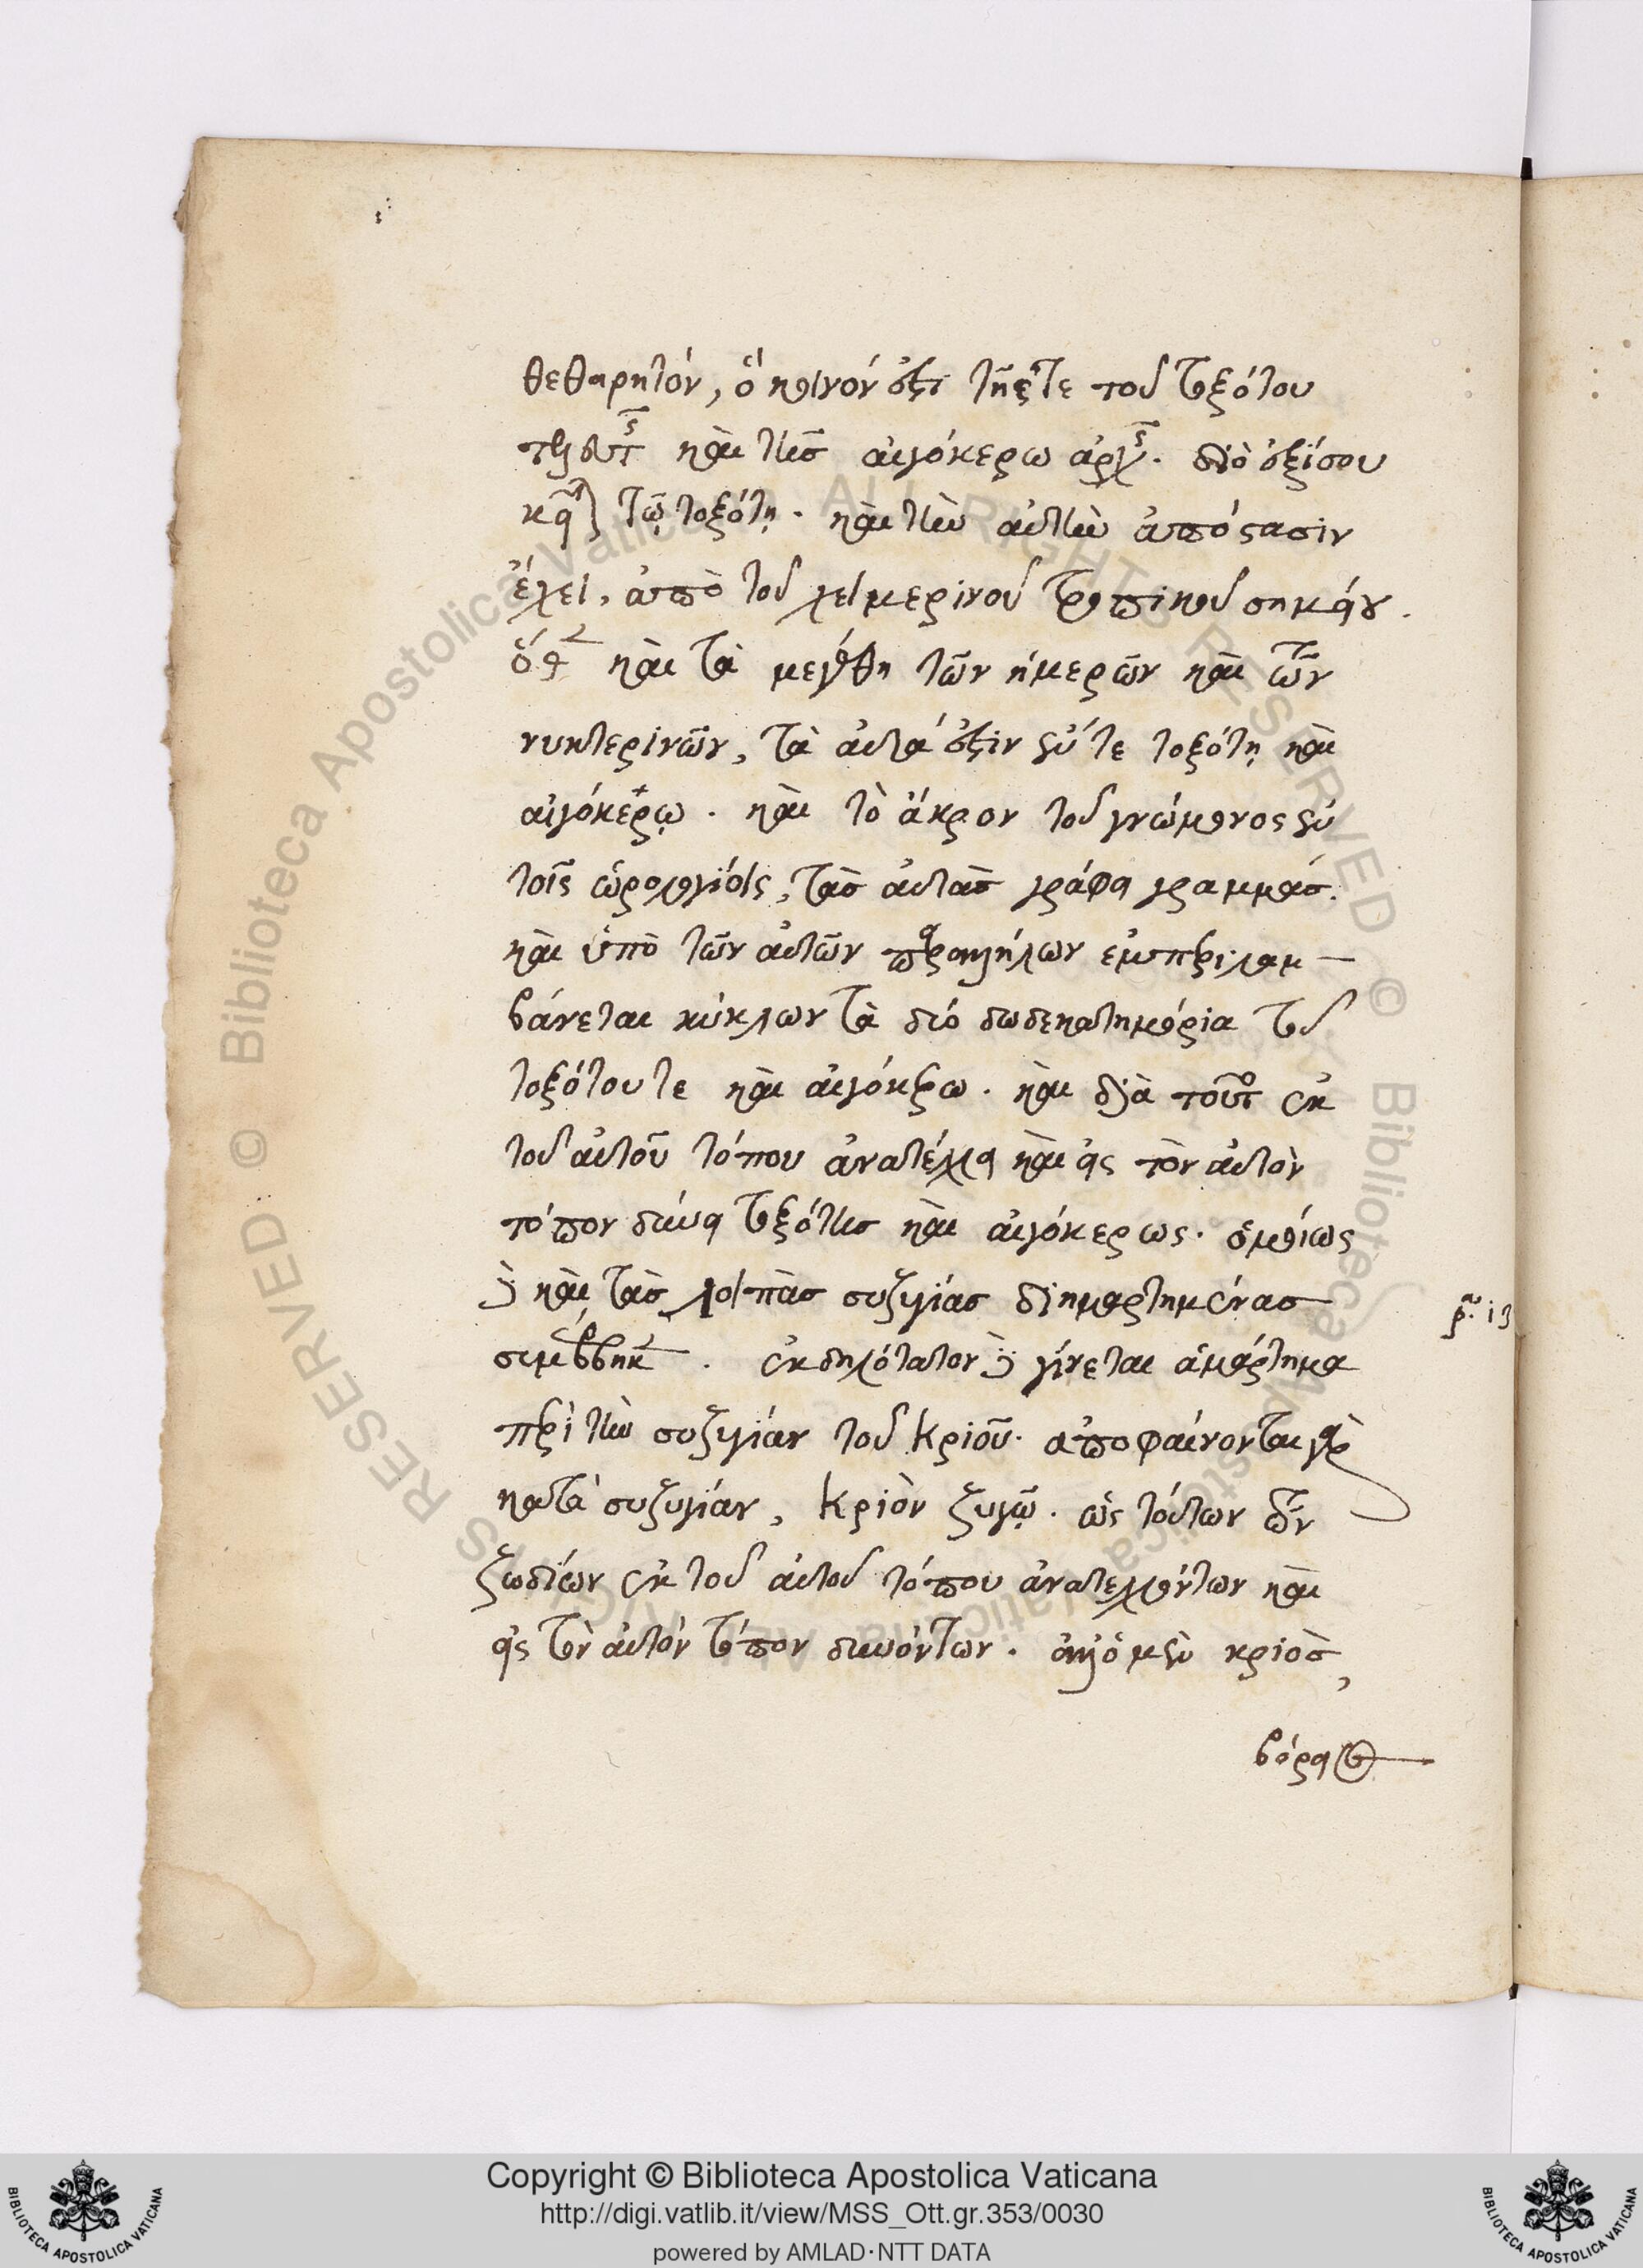 θεωρητόν, ὃ κοινόν ἐστι τῆς τε τοῦ τοξότου
τελευτῆς καὶ τῆς αἰγόκερω ἀρχῆς. διὸ ἐξίσου
κεῖται τῷ τοξότῃ. καὶ τὴν αὐτὴν ἀπόστασιν
ἔχει, ἀπὸ τοῦ χειμερινοῦ τροπικοῦ σημείου.
ὅθεν καὶ τὰ μεγέθη τῶν ἡμερῶν καὶ τῶν
νυκτερινῶν, τὰ αὐτά ἐστιν ἔν τε τοξότῃ καὶ
αἰγόκερῳ. καὶ τὸ ἄκρον τοῦ γνώμονος ἐν
τοῖς ὡρολογίοις, τὰς αὐτὰς γράφει γραμμάς.
καὶ ὑπὸ τῶν αὐτῶν παραλλήλων ἐμπεριλαμ-
βάνεται κύκλων τὰ δύο δωδεκατημόρια τοῦ
τοξότου τε καὶ αἰγόκερω. καὶ διὰ τοῦτο ἐκ
τοῦ αὐτοῦ τόπου ἀνατέλλει καὶ εἰς τὸν αὐτὸν
τόπον δύνει τοξότης καὶ αἰγόκερως. ὁμοίως
δὲ καὶ τὰς λοιπὰς συζυγίας διημαρτημένας
συμβέβηκεν. ἐκδηλότατον δὲ γίνεται ἁμάρτημα
περὶ τὴν συζυγίαν τοῦ Κριοῦ. ἀποφαίνονται γὰρ
κατὰ συζυγίαν, Κριὸν ζυγῷ. ὡς τούτων τῶν
ζωδίων ἐκ τοῦ αὐτοῦ τόπου ἀνατελλόντων καὶ
εἰς τὸν αὐτὸν τόπον δυνόντων. ἀλλ' ὁ μὲν κριὸς,
βόρειος
Copyright © Biblioteca Apostolica Vaticana
http://digi.vatlib.it/view/MSS_Ott.gr.353/0030
powered by AMLAD·NTT DATA